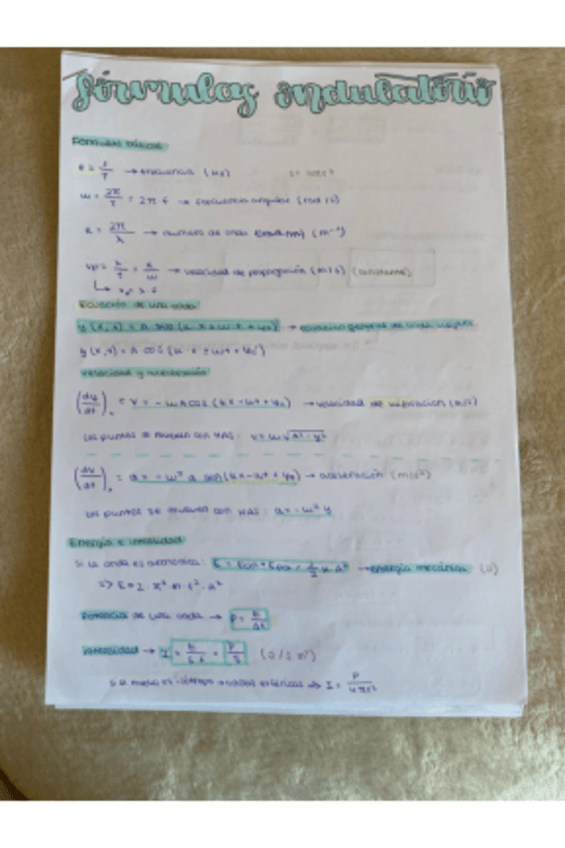 fórmulas ondulatorio
Fórmulas básicas
f = 1/T → frecuencia (Hz) S = 4πr²
ω = 2π/T = 2π f → frecuencia angular (rad/s)
k = 2π/λ → número de onda (m⁻¹)
vp = λ/T = → velocidad de propagación (m/s) (constante)
↳ vp = λ·f
Ecuación de una onda
y (x, t) = A sen (k·x ± ω·t + φ₀) → ecuación general de onda
y (x, t) = A cos (k·x ± ω·t + φ₀')
velocidad y aceleración
(dy/dt) = v = - ωA cos (kx - ωt + φ₀) → velocidad de vibración (m/s)
Los puntos se mueven con MAS: v = ω √A² - y²
(dv/dt) = a = - ω² A sen (kx - ωt + φ₀) → aceleración (m/s²)
Los puntos se mueven con MAS: a = - ω² y
Energía e intensidad
Si la onda es armónica: E = Ec + Ep = 1/2 k A² → energía mecánica (J)
=> E = 2·π²·m·f²·A²
Potencia de una onda → P = E/Δt
intensidad → I = E/S·t = P/S (J/s m²)
Si el medio es isótropo → ondas esféricas => I = P/4πr²